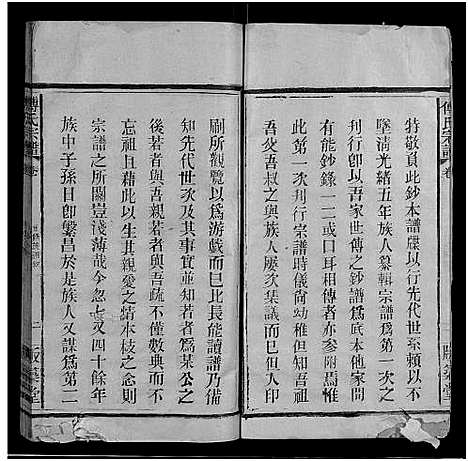 特敬負此鈔本譜牒以行先代世系賴以不
墜清光緒五年族人纂輯宗譜為第一次之
刊行卽以吾家世傳之鈔譜為底本他家間
有能鈔錄一二或口耳相傳者附焉惟
此第一次刊行宗譜時尙幼稚但知其
吾父吾叔之與族人屢次集議而已但人印
刷所觀覽以為游戲而已比長能讀譜乃備
知先代世次及其事實並知若者為某公之
後若者與吾親若者與吾疏不僅數典而不
忘祖也且藉此以生其親愛之情本枝之念顧
宗譜之所關豈淺薄哉今忽七又四十餘年
族中子孫日卽繁昌於是族人又謀為第二
傅氏宗譜
卷
二
版築堂
傅氏宗譜
卷
版築堂